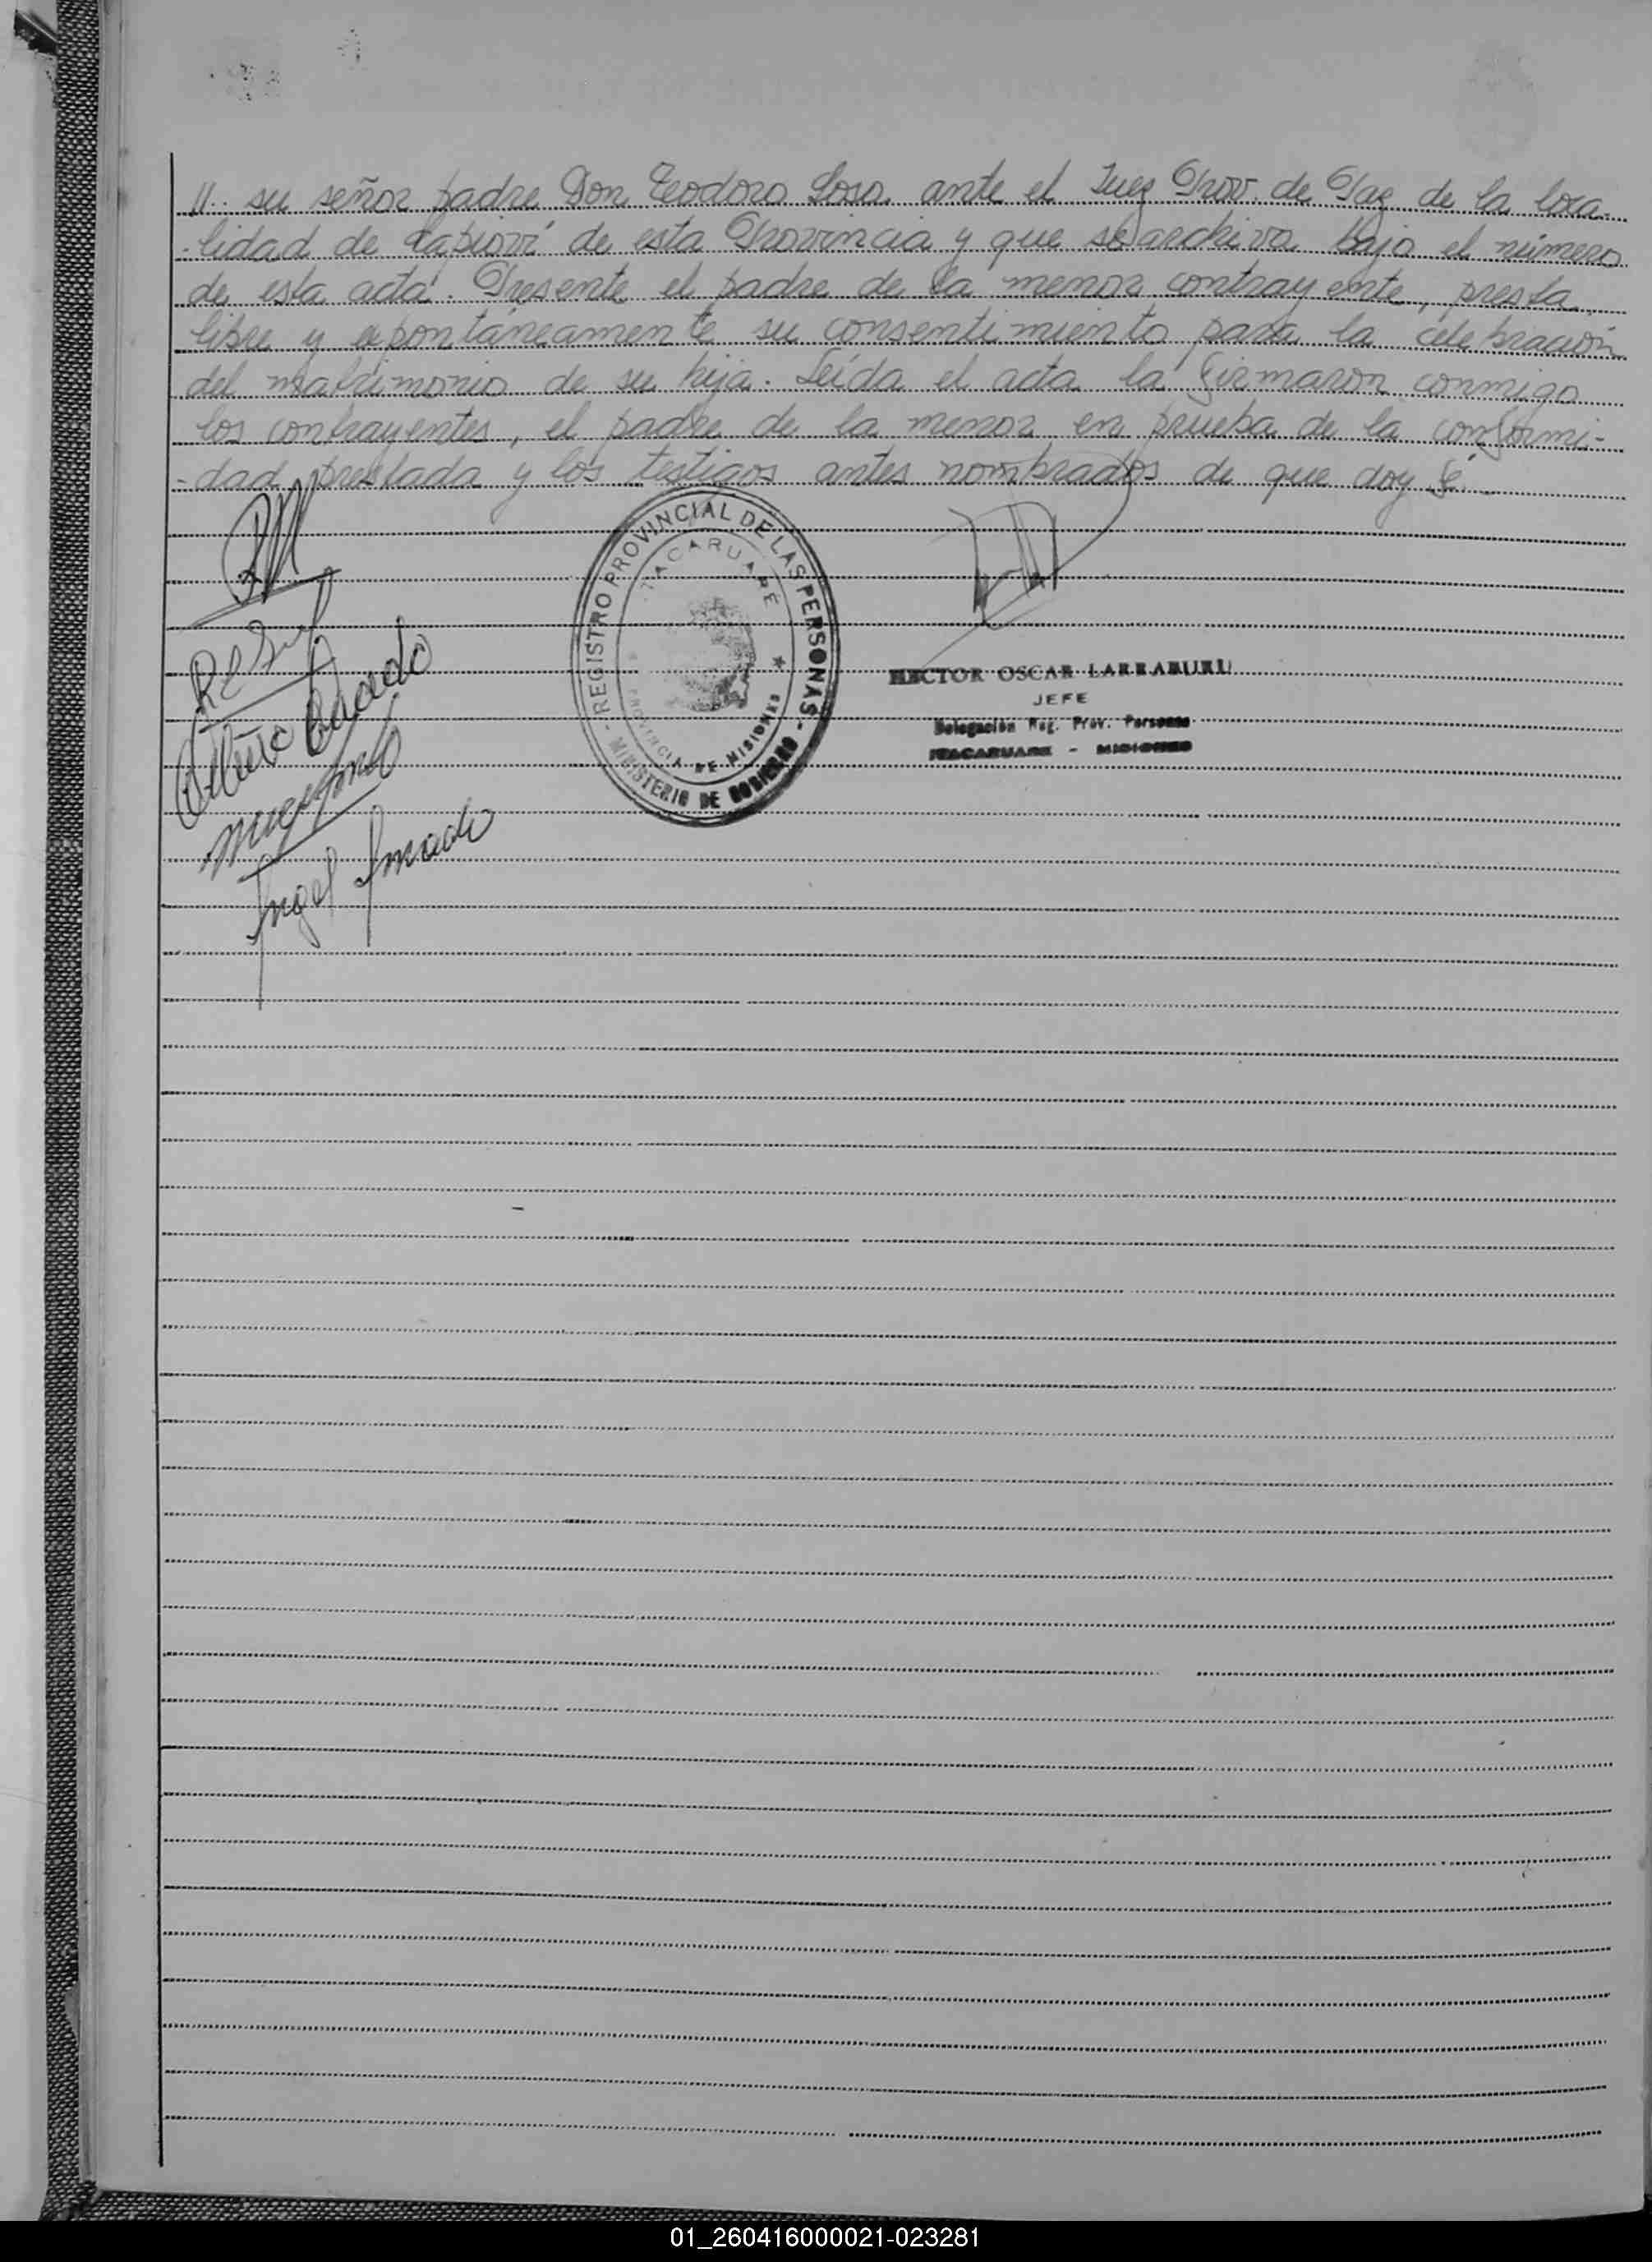 //.. su señor padre Don Teodoro Sosa ante el Juez Prov. de Paz de la loca-
-lidad de Capioví de esta Provincia y que se archiva bajo el número
de esta acta. Presente el padre de la menor contrayente, presta
libre y expontáneamente su consentimiento para la celebración
del matrimonio de su hija. Leída el acta la firmaron conmigo
los contrayentes, el padre de la menor en prueba de la conformi-
-dad prestada y los testigos antes nombrados de que doy fé.-
- REGISTRO PROVINCIAL DE LAS PERSONAS -
MINISTERIO DE GOBIERNO
ITACARUARÉ
PROVINCIA DE MISIONES
HECTOR OSCAR LARRABURU
JEFE
Delegación Reg. Prov. Personas
ITACARUARE - MISIONES
Angel Amado
01_260416000021-023281